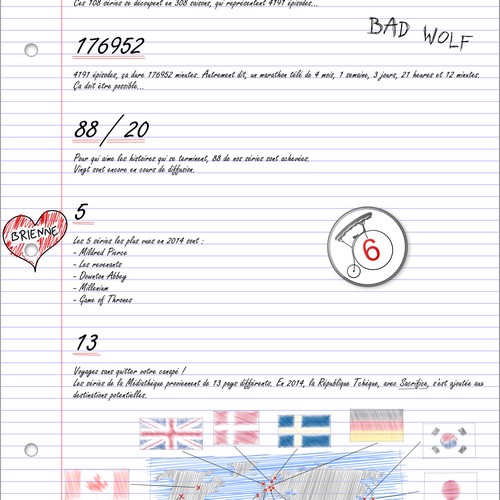 Ces 108 séries se découpent en 308 saisons, qui représentent 4191 épisodes...
BAD WOLF
176952
4191 épisodes, ça dure 176952 minutes. Autrement dit, un marathon télé de 4 mois, 1 semaine, 3 jours, 21 heures et 12 minutes.
Ça doit être possible...
88 / 20
Pour qui aime les histoires qui se terminent, 88 de nos séries sont achevées.
Vingt sont encore en cours de diffusion.
5
BRIENNE
Les 5 séries les plus vues en 2014 sont :
- Mildred Pierce
- Les revenants
- Downton Abbey
- Millenium
- Game of Thrones
6
13
Voyagez sans quitter votre canapé !
Les séries de la Médiathèque proviennent de 13 pays différents. En 2014, la République Tchèque, avec Sacrifice, s'est ajoutée aux
destinations potentielles.